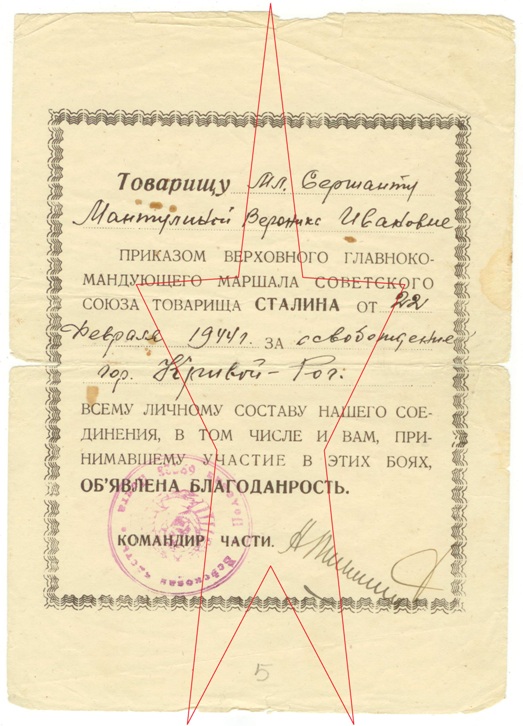 Товарищу Мл. Сержанту
Мантулиной Веронике Ивановне
ПРИКАЗОМ ВЕРХОВНОГО ГЛАВНОКО-
МАНДУЮЩЕГО МАРШАЛА СОВЕТСКОГО
СОЮЗА ТОВАРИЩА СТАЛИНА ОТ 22
Февраля 1944 г. ЗА освобождение
гор. Кривой-Рог.
ВСЕМУ ЛИЧНОМУ СОСТАВУ НАШЕГО СОЕ-
ДИНЕНИЯ, В ТОМ ЧИСЛЕ И ВАМ, ПРИ-
НИМАВШЕМУ УЧАСТИЕ В ЭТИХ БОЯХ,
ОБ'ЯВЛЕНА БЛАГОДАНРОСТЬ.
КОМАНДИР ЧАСТИ.
Полевая Почта
Войсковая часть
5